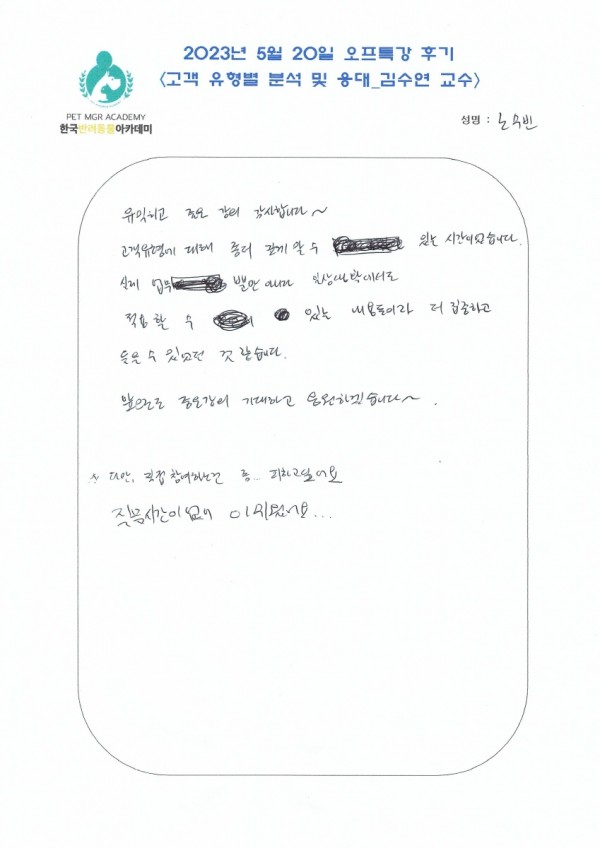 2023년 5월 20일 오프특강 후기
<고객 유형별 분석 및 응대_김수연 교수>
PET MGR ACADEMY
한국반려동물아카데미
성명 : 노수빈
유익하고 좋은 강의 감사합니다~
고객유형에 대해 좀더 깊게 알 수 있는 시간이었습니다.
실제 업무 뿐만 아니라 일상생활에서도
적용 할 수 있는 내용들이라 더 집중하고
들을 수 있었던 것 같습니다.
앞으로도 좋은강의 기대하고 응원하겠습니다~.
다만, 직접 참여하는건 좀.. 피하고싶어요
질문시간이 없어 아쉬웠어요...